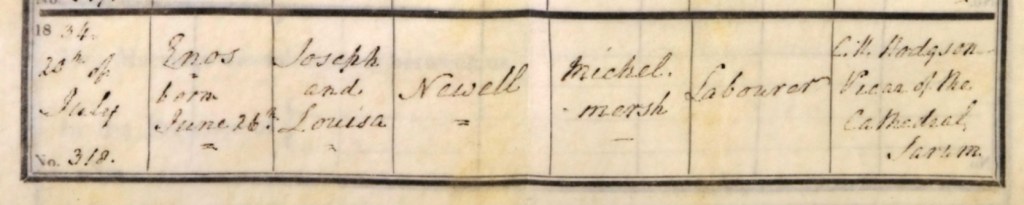 1834.
20th of
July
No. 318.
Enos
born
June 26th
Joseph
and
Louisa
Newell
Michel-
mersh
Labourer
C. H. Hodgson
Vicar of the
Cathedral,
Sarum.